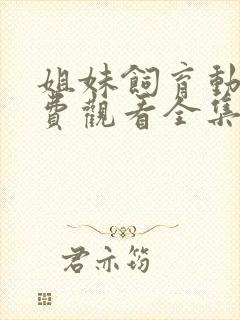 姐妹飼育動
費觀看全集
君亦筠